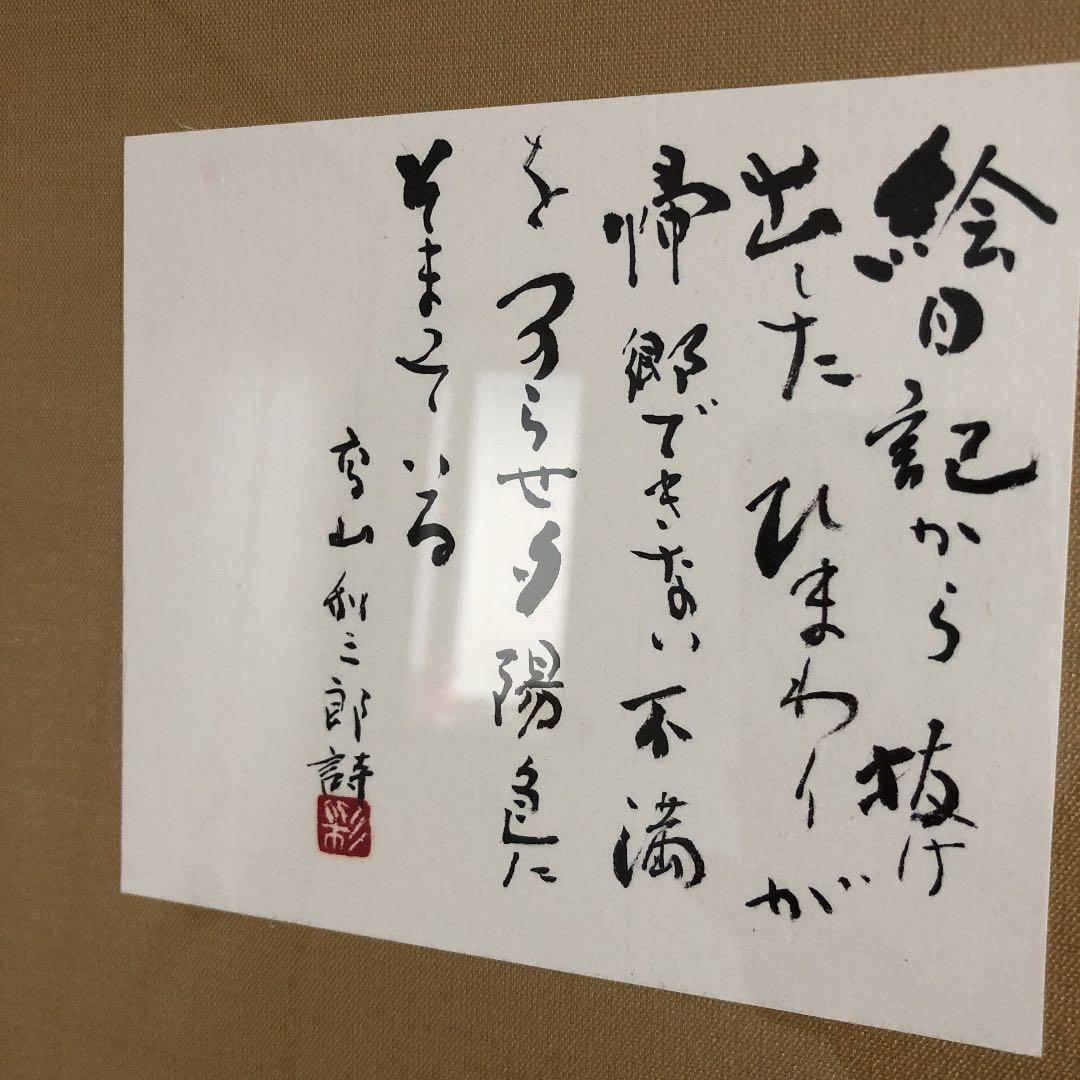 絵日記から抜け
出したひまわりが
帰郷できない不満
を つのらせ夕陽色に
そまっている
高山利三郎詩
彩